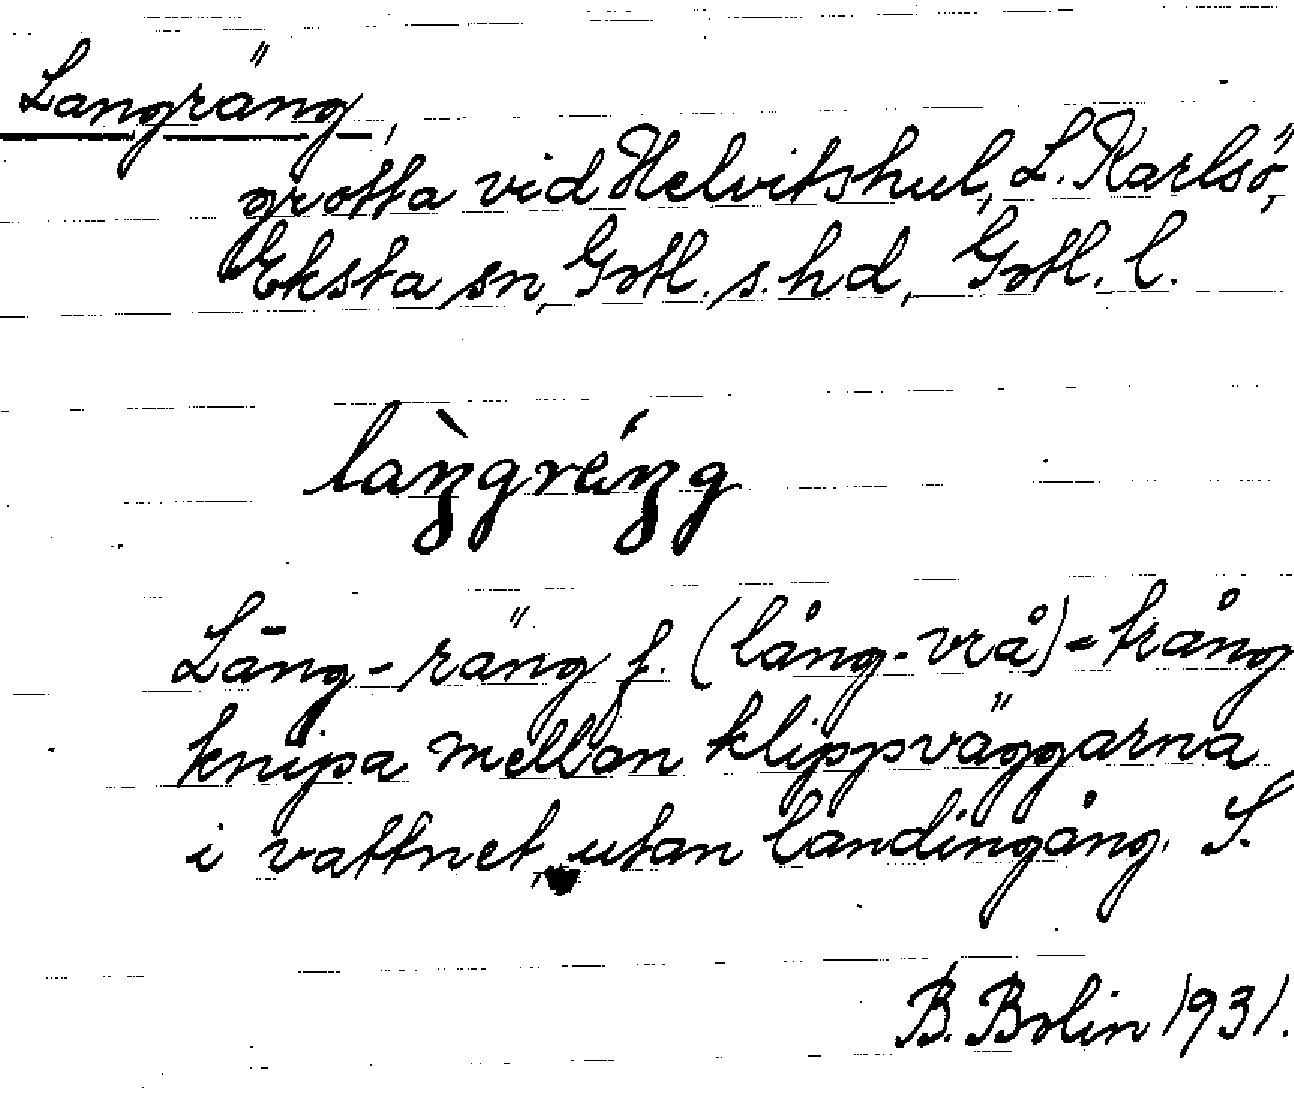 Langräng,
grotta vid Helvitshul, L. Karlsö,
Eksta sn, Gotl. s. hd, Gotl. l.
làŋgréŋg
Lāng-räng f. (lång-vrå) = trång
knipa mellan klippväggarna
i vattnet, utan landingång. S.
B. Bolin 1931.